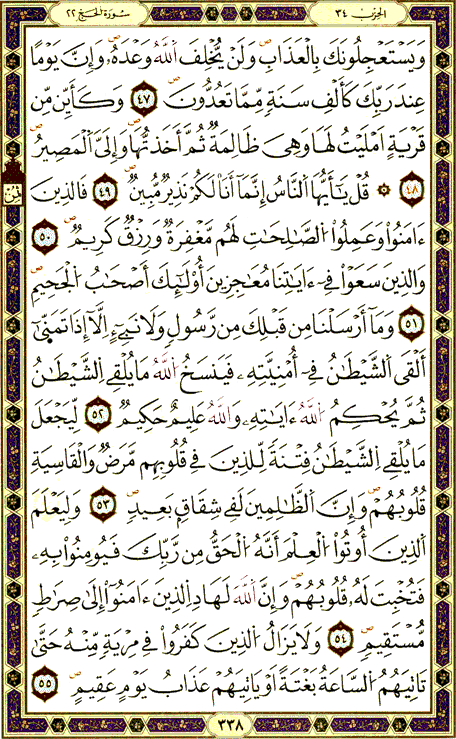 الحزب ٣٤
سورة الحج ٢٢
وَيَسْتَعْجِلُونَكَ بِالْعَذَابِ وَلَنْ يُّخْلِفَ اَللَّهُ وَعْدَهُۥ وَإِنَّ يَوْمًا
عِندَ رَبِّكَ كَأَلْفِ سَنَةٍ مِّمَّا تَعُدُّونَ ٤٧ وَكَأَيِّن مِّن
قَرْيَةٍ اَمْلَيْتُ لَهَا وَهِيَ ظَالِمَةٌ ثُمَّ أَخَذتُّهَا وَإِلَيَّ اَلْمَصِيرُ
٤٨ ۞ قُلْ يَٰٓأَيُّهَا اَلنَّاسُ إِنَّمَآ أَنَا لَكُمْ نَذِيرٌ مُّبِينٌ ٤٩ فَالذِينَ
ءَامَنُواْ وَعَمِلُواْ اُلصَّٰلِحَٰتِ لَهُم مَّغْفِرَةٌ وَرِزْقٌ كَرِيمٌ ٥٠
وَالذِينَ سَعَوْاْ فِےٓ ءَايَٰتِنَا مُعَٰجِزِينَ أُوْلَٰٓئِكَ أَصْحَٰبُ اُلْجَحِيمِ
٥١ وَمَآ أَرْسَلْنَا مِن قَبْلِكَ مِن رَّسُولٍ وَلَا نَبِےٓءٍ اِلَّآ إِذَا تَمَنَّىٰٓ
أَلْقَى اَلشَّيْطَٰنُ فِےٓ أُمْنِيَّتِهِۦ فَيَنسَخُ اُللَّهُ مَا يُلْقِے اِلشَّيْطَٰنُ
ثُمَّ يُحْكِمُ اُللَّهُ ءَايَٰتِهِۦ وَاللَّهُ عَلِيمٌ حَكِيمٌ ٥٢ لِّيَجْعَلَ
مَا يُلْقِے اِلشَّيْطَٰنُ فِتْنَةً لِّلذِينَ فِے قُلُوبِهِم مَّرَضٌ وَالْقَاسِيَةِ
قُلُوبُهُمْ وَإِنَّ اَلظَّٰلِمِينَ لَفِے شِقَاقٍ بَعِيدٍ ٥٣ وَلِيَعْلَمَ
اَلذِينَ أُوتُواْ اُلْعِلْمَ أَنَّهُ اُلْحَقُّ مِن رَّبِّكَ فَيُومِنُواْ بِهِۦ
فَتُخْبِتَ لَهُۥ قُلُوبُهُمْ وَإِنَّ اَللَّهَ لَهَادِ اِلذِينَ ءَامَنُوٓاْ إِلَىٰ صِرَٰطٍ
مُّسْتَقِيمٍ ٥٤ وَلَا يَزَالُ اُلذِينَ كَفَرُواْ فِے مِرْيَةٍ مِّنْهُ حَتَّىٰ
تَاتِيَهُمُ اُلسَّاعَةُ بَغْتَةً اَوْ يَاتِيَهُمْ عَذَابُ يَوْمٍ عَقِيمٍ ٥٥
٣٣٨